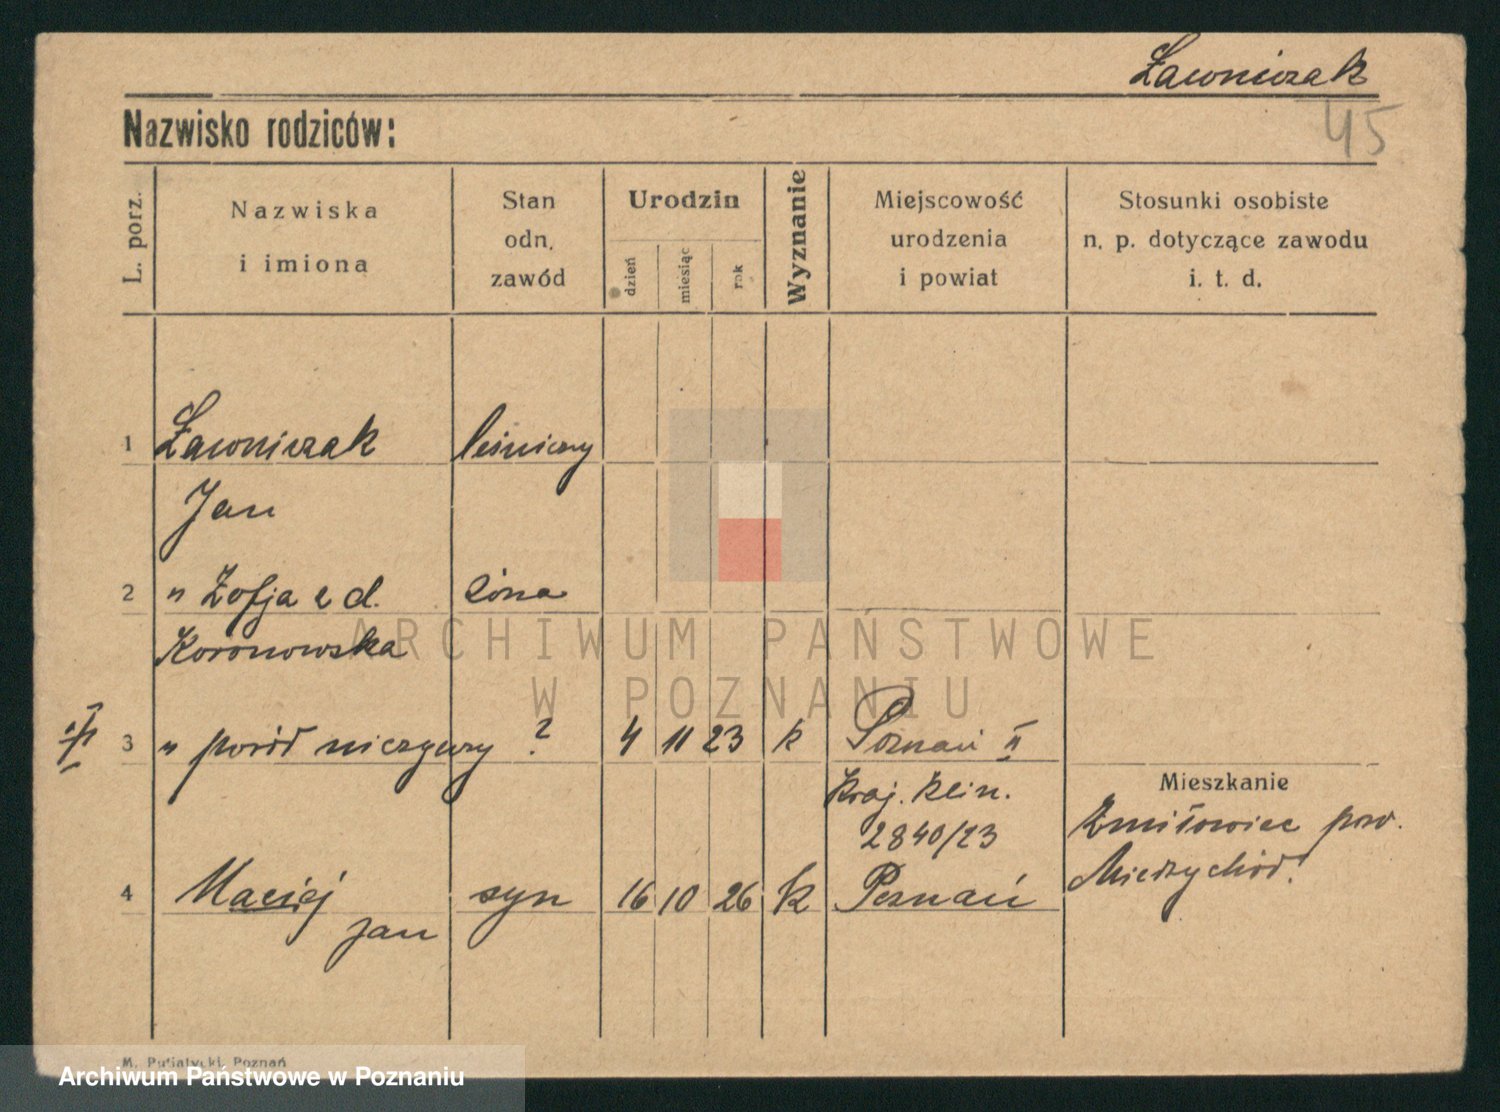 Ławniczak
45
Nazwisko rodziców:
L. porz.
Nazwiska
i imiona
Stan
odn.
zawód
Urodzin
dzień
miesiąc
rok
Wyznanie
Miejscowość
urodzenia
i powiat
Stosunki osobiste
n. p. dotyczące zawodu
i. t. d.
1 Ławniczak leśniczy
Jan
2 " Zofja z d. żona
Koronowska
3 " poród nieżywy ? 4 11 23 k Poznań II
Mieszkanie
2840/23
pow.
Międzychód.
4 Maciej syn 16 10 26 k Poznań
Jan
M. Putiatycki, Poznań
ARCHIWUM PAŃSTWOWE
W POZNANIU
Archiwum Państwowe w Poznaniu